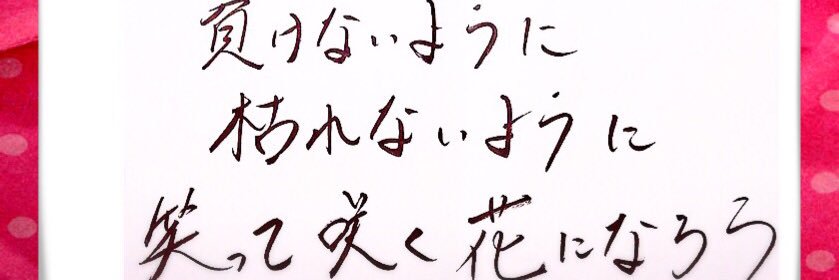 負けないように
枯れないように
笑って咲く花になろう